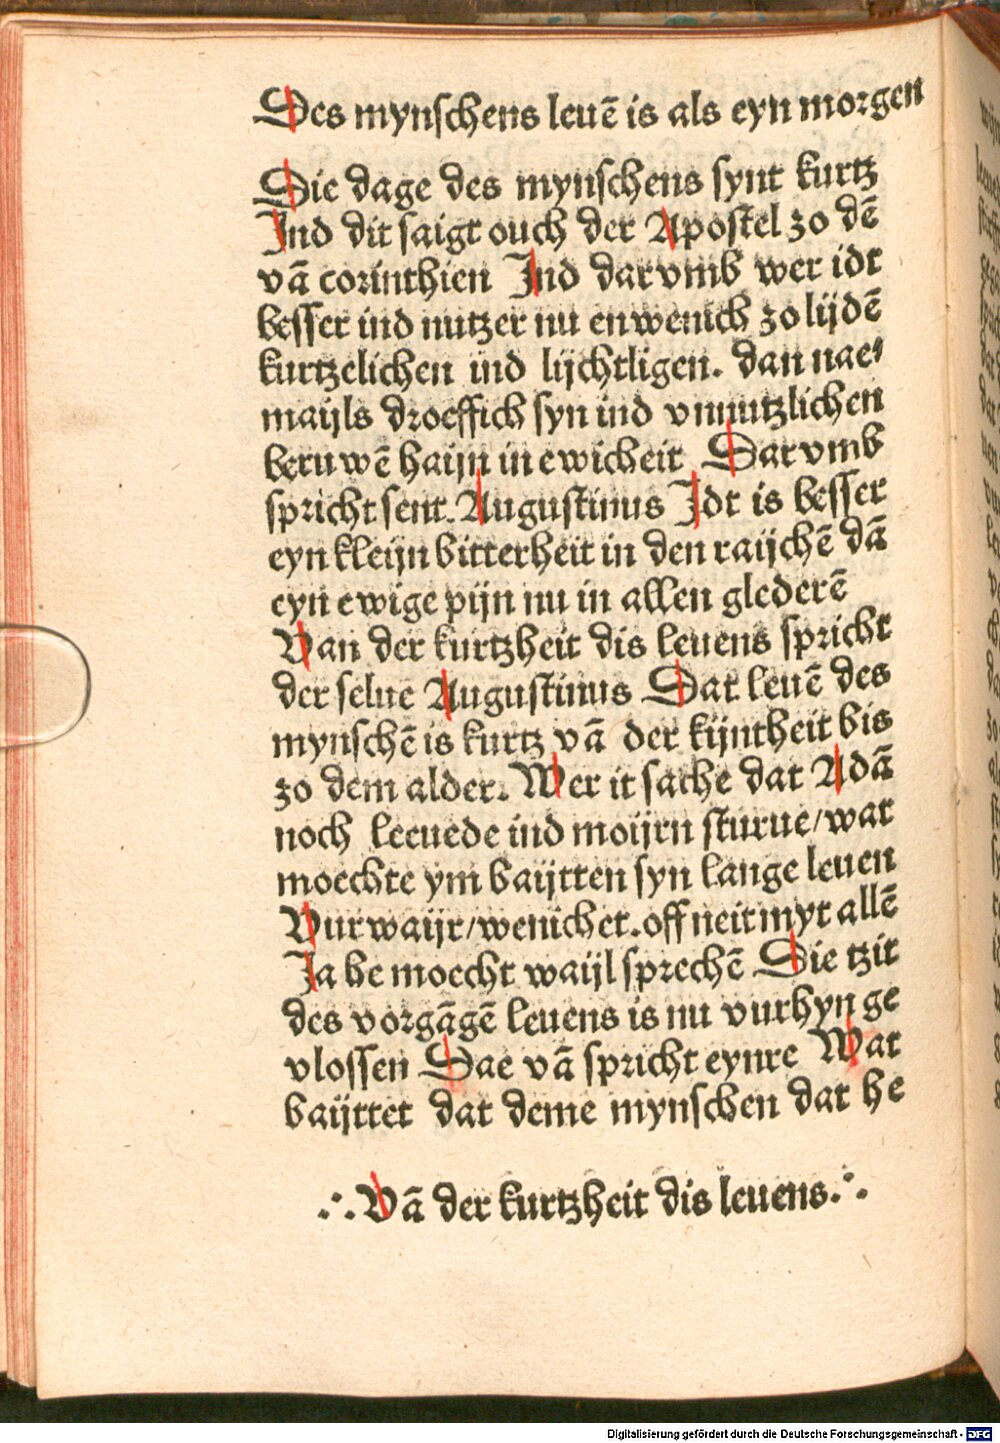 Des mynschens leuē is als eyn morgen
Die dage des mynschens synt kurtz
Ind dit saigt ouch der Apostel zo dē
vā corinthien Ind dar vmb wer idt
besser ind nutzer nu en wenich zo lijdē
kurtzelichen ind lijchtligen. dan nae⸗
maijls droeffich syn ind vnnutzlichen
beruwē haijn in ewicheit Dar vmb
spricht sent. Augustinus Idt is besser
eyn kleijn bitterheit in den raijchē dā
eyn ewige pijn nu in allen glederē
Van der kurtzheit dis leuens spricht
der selue Augustinus Dat leuē des
mynschē is kurtz vā der kijntheit bis
zo dem alder. Wer it sache dat Adā
noch leeuede ind moijrn sturue/wat
moechte ym baijtten syn lange leuen
Vur waijr/wenichet. off neit myt allē
Ja he moecht waijl sprechē Die tzit
des vorgāgē leuens is nu vurhyn ge
vlossen Dae vā spricht eynre Wat
baijttet dat deme mynschen dat he
.·. Vā der kurtzheit dis leuens. .·.
Digitalisierung gefördert durch die Deutsche Forschungsgemeinschaft - DFG